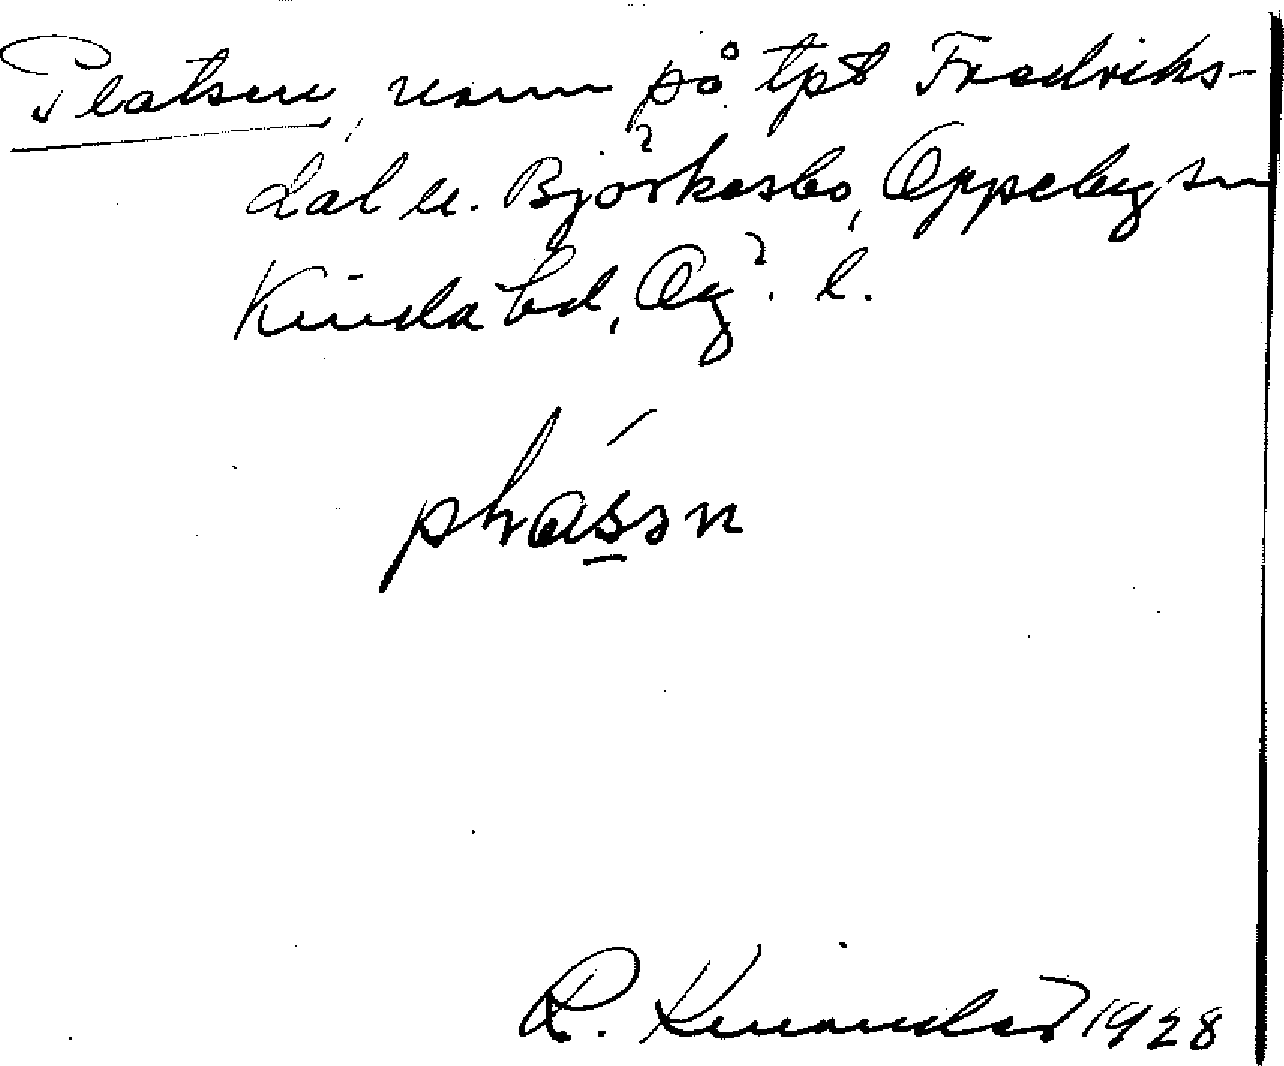 Platsen, namn på tpt Fredriks-
dal u. Björkesbo, Oppeby sn
Kinda hd, Ög. l.
plássn
R. Kinander 1928